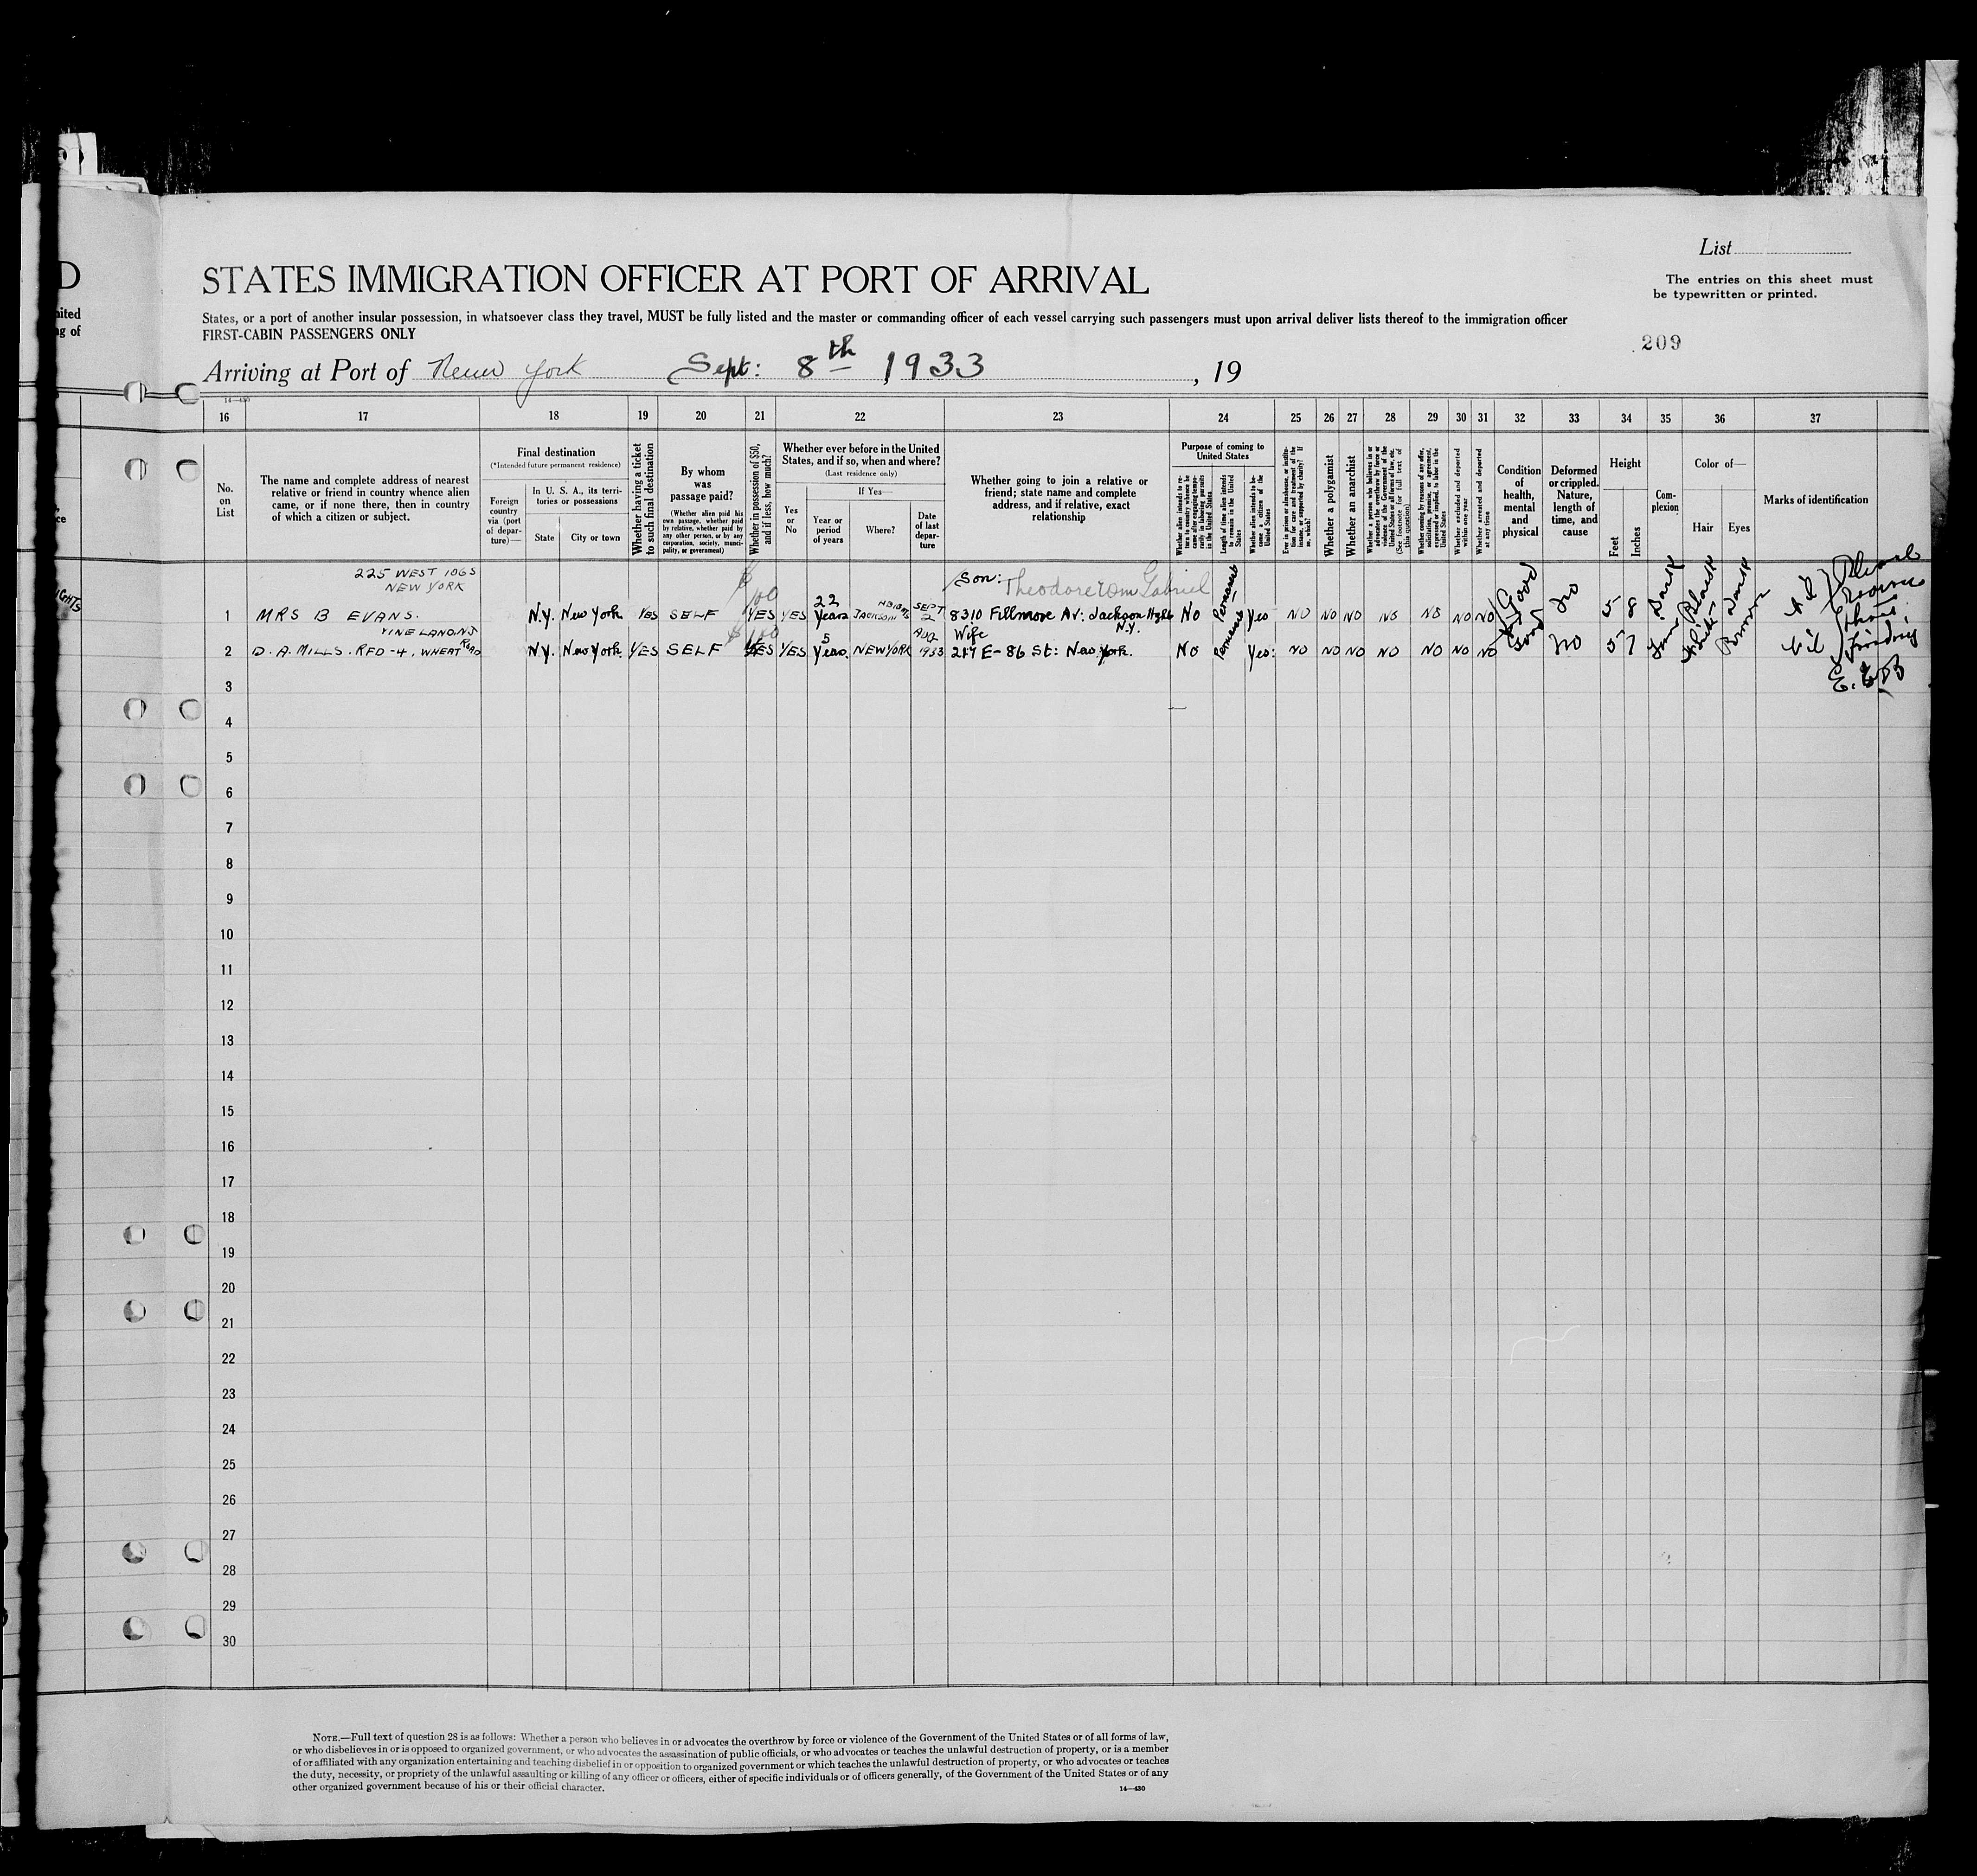 List
STATES IMMIGRATION OFFICER AT PORT OF ARRIVAL
The entries on this sheet must
be typewritten or printed.
States, or a port of another insular possession, in whatsoever class they travel, MUST be fully listed and the master or commanding officer of each vessel carrying such passengers must upon arrival deliver lists thereof to the immigration officer
FIRST-CABIN PASSENGERS ONLY
209
Arriving at Port of New York Sept: 8th 1933, 19
16 17 18 19 20 21 22 23 24 25 26 27 28 29 30 31 32 33 34 35 36 37
No.
on
List
The name and complete address of nearest
relative or friend in country whence alien
came, or if none there, then in country
of which a citizen or subject.
Final destination
(*Intended future permanent residence)
Foreign
country
via (port
of depar-
ture)—
In U. S. A., its terri-
tories or possessions
State
City or town
Whether having a ticket
to such final destination
By whom
was
passage paid?
(Whether alien paid his
own passage, whether paid
by relative, whether paid by
any other person, or by any
corporation, society, munici-
pality, or government)
Whether in possession of $50,
and if less, how much?
Whether ever before in the United
States, and if so, when and where?
(Last residence only)
Yes
or
No
If Yes—
Year or
period
of years
Where?
Date
of last
depar-
ture
Whether going to join a relative or
friend; state name and complete
address, and if relative, exact
relationship
Purpose of coming to
United States
Length of time alien intends
to remain in the United
States
Whether alien intends to be-
come a citizen of the
United States
Whether a polygamist
Whether an anarchist
Whether excluded and deported
within one year
Whether arrested and deported
at any time
Condition
of
health,
mental
and
physical
Deformed
or crippled.
Nature,
length of
time, and
cause
Height
Feet
Inches
Com-
plexion
Color of—
Hair
Eyes
Marks of identification
225 WEST 106 S
NEW YORK
1 MRS B EVANS. N.Y. New York YES SELF $100 YES YES 22 Years JACKSON SEPT 2 Son: Gabriel 8310 Fillmore Av: Jackson Hgts N.Y. No Permanent Yes NO NO NO NO NO NO NO Good No 5 8 Dark Black Dark
VINELAND NJ
2 D. A. MILLS. RFD-4, WHEAT ROAD N.Y. New York. YES SELF $100 YES YES 5 Years. NEW YORK AUG 1933 Wife 217 E-86 St: New York. No Permanent Yes: NO NO NO NO NO NO NO Good No 5 7 Brown
3
4
5
6
7
8
9
10
11
12
13
14
15
16
17
18
19
20
21
22
23
24
25
26
27
28
29
30
NOTE.—Full text of question 28 is as follows: Whether a person who believes in or advocates the overthrow by force or violence of the Government of the United States or of all forms of law,
or who disbelieves in or is opposed to organized government, or who advocates the assassination of public officials, or who advocates or teaches the unlawful destruction of property, or is a member
of or affiliated with any organization entertaining and teaching disbelief in or opposition to organized government or which teaches the unlawful destruction of property, or who advocates or teaches
the duty, necessity, or propriety of the unlawful assaulting or killing of any officer or officers, either of specific individuals or of officers generally, of the Government of the United States or of any
other organized government because of his or their official character.
14—430